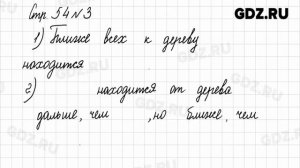 GDZ.RU
Стр 54 №3
1) Ближе всех к дереву
находится
2) находится от дерева
дальше, чем , но ближе, чем